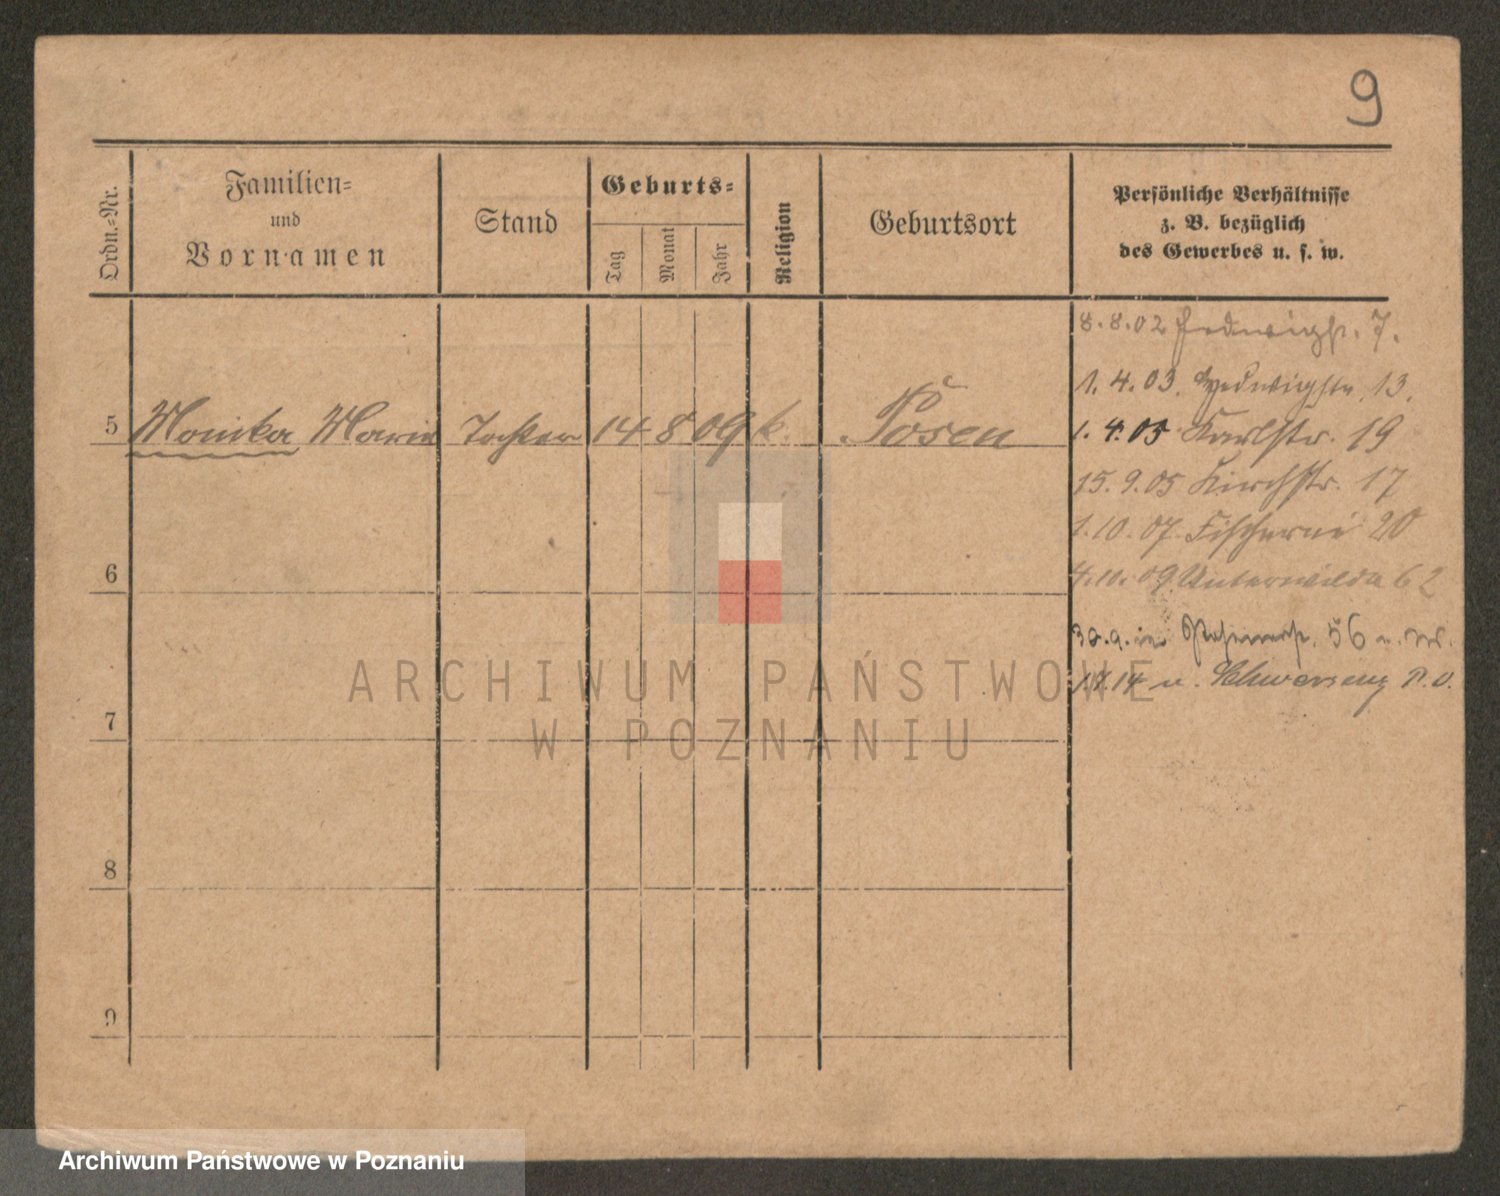 9
Ordn.-Nr.
Familien-
und
Vornamen
Stand
Geburts-
Tag
Monat
Jahr
Religion
Geburtsort
Persönliche Verhältnisse
z. B. bezüglich
des Gewerbes u. s. w.
8.8.02 Hedwigstr. 7.
1.4.03. Hedwigstr. 13.
5 Monika Maria Tochter 14 8 09 k. Posen
1.4.05 Karlstr. 19
15.9.05 Kirchstr. 17
1.10.07. Fischerei 20
6
4.10.09 Unterwilda 62
30.9. 56
14 n. Schwersenz P. O.
7
8
9
ARCHIWUM PAŃSTWOWE
W POZNANIU
Archiwum Państwowe w Poznaniu